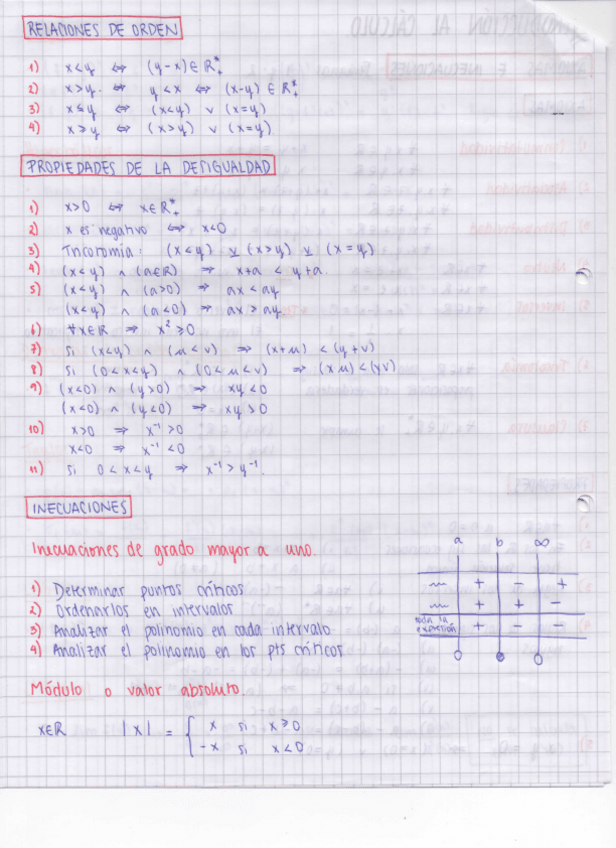 RELACIONES DE ORDEN
1) x<y ⇔ (y-x)∈ℝ₊*
2) x>y ⇔ y<x ⇔ (x-y)∈ℝ₊*
3) x≤y ⇔ (x<y) ∨ (x=y)
4) x≥y ⇔ (x>y) ∨ (x=y)
PROPIEDADES DE LA DESIGUALDAD
1) x>0 ⇔ x∈ℝ₊*
2) x es negativo ⇔ x<0
3) Tricotomía: (x<y) ⊻ (x>y) ⊻ (x=y)
4) (x<y) ∧ (a∈ℝ) ⇒ x+a < y+a
5) (x<y) ∧ (a>0) ⇒ ax<ay
(x<y) ∧ (a<0) ⇒ ax>ay
6) ∀x∈ℝ ⇒ x²≥0
7) si (x<y) ∧ (μ<v) ⇒ (x+μ) < (y+v)
8) si (0<x<y) ∧ (0<μ<v) ⇒ (xμ)<(yv)
9) (x<0) ∧ (y>0) ⇒ xy<0
(x<0) ∧ (y<0) ⇒ xy>0
10) x>0 ⇒ x⁻¹>0
x<0 ⇒ x⁻¹<0
11) si 0<x<y ⇒ x⁻¹>y⁻¹.
INECUACIONES
Inecuaciones de grado mayor a uno.
1) Determinar puntos críticos
2) Ordenarlos en intervalos
3) Analizar el polinomio en cada intervalo
4) Analizar el polinomio en los pts críticos
a b ∞
+ - +
+ + -
toda la expresión + - -
Módulo o valor absoluto
x∈ℝ |x| = { x si x≥0
-x si x<0